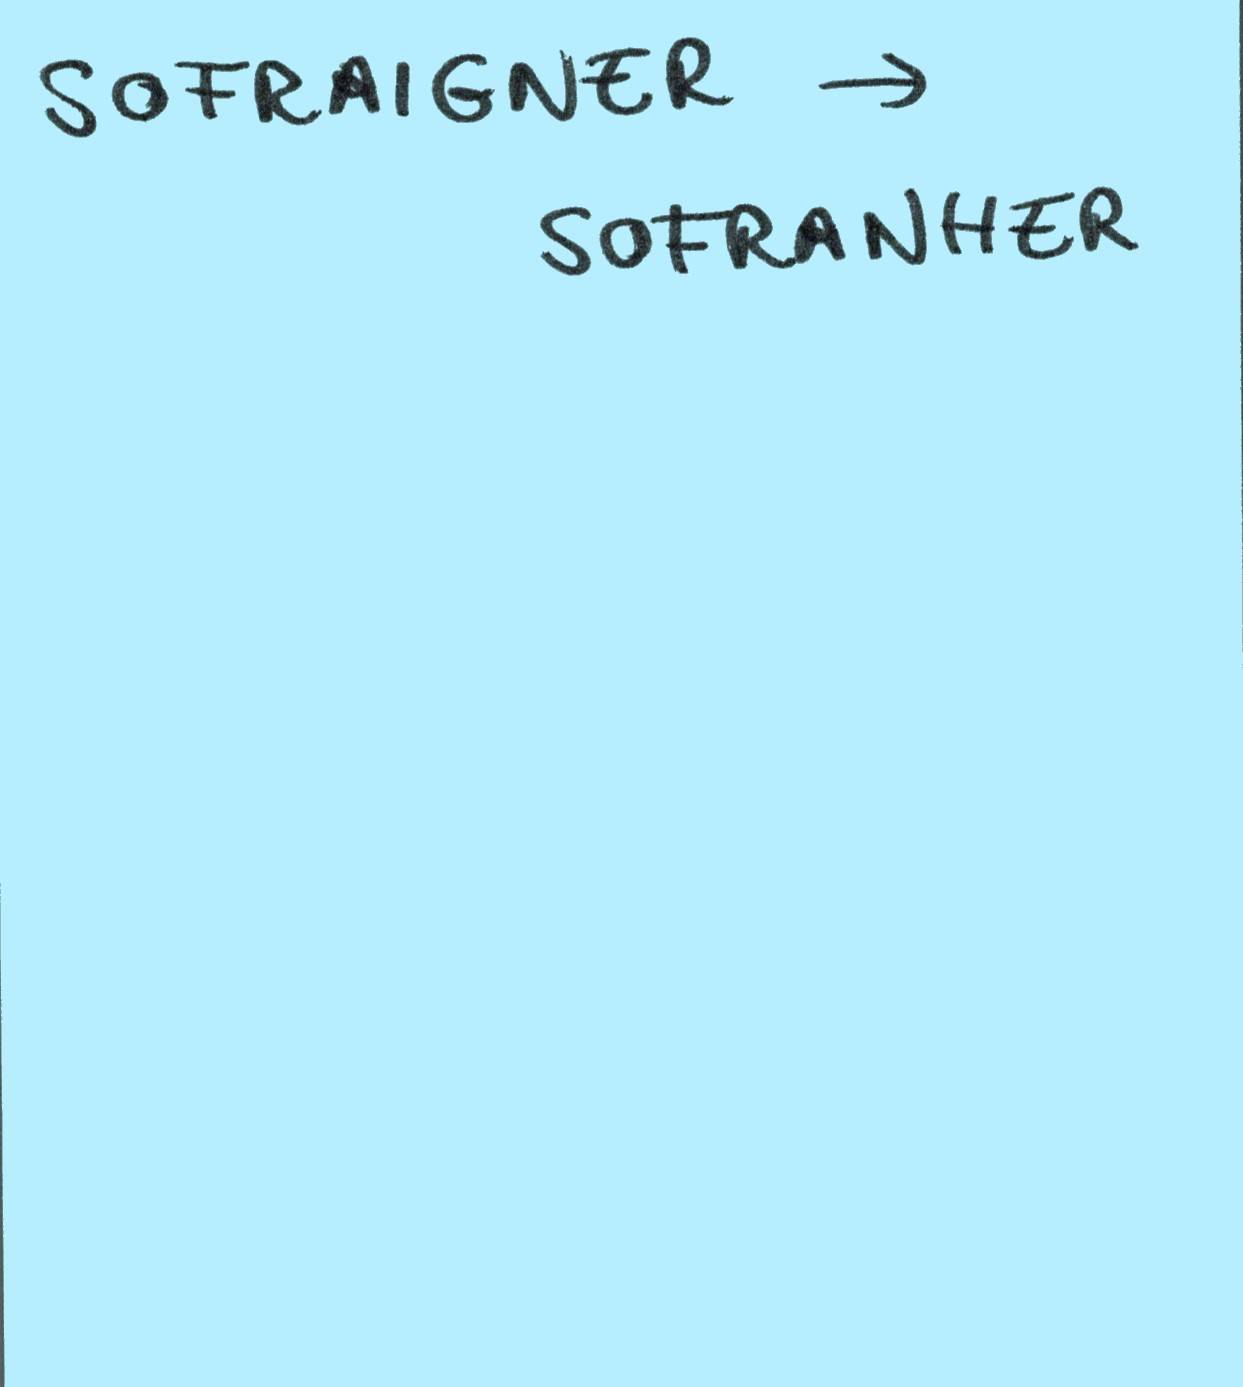 SOFRAIGNER →
SOFRANHER